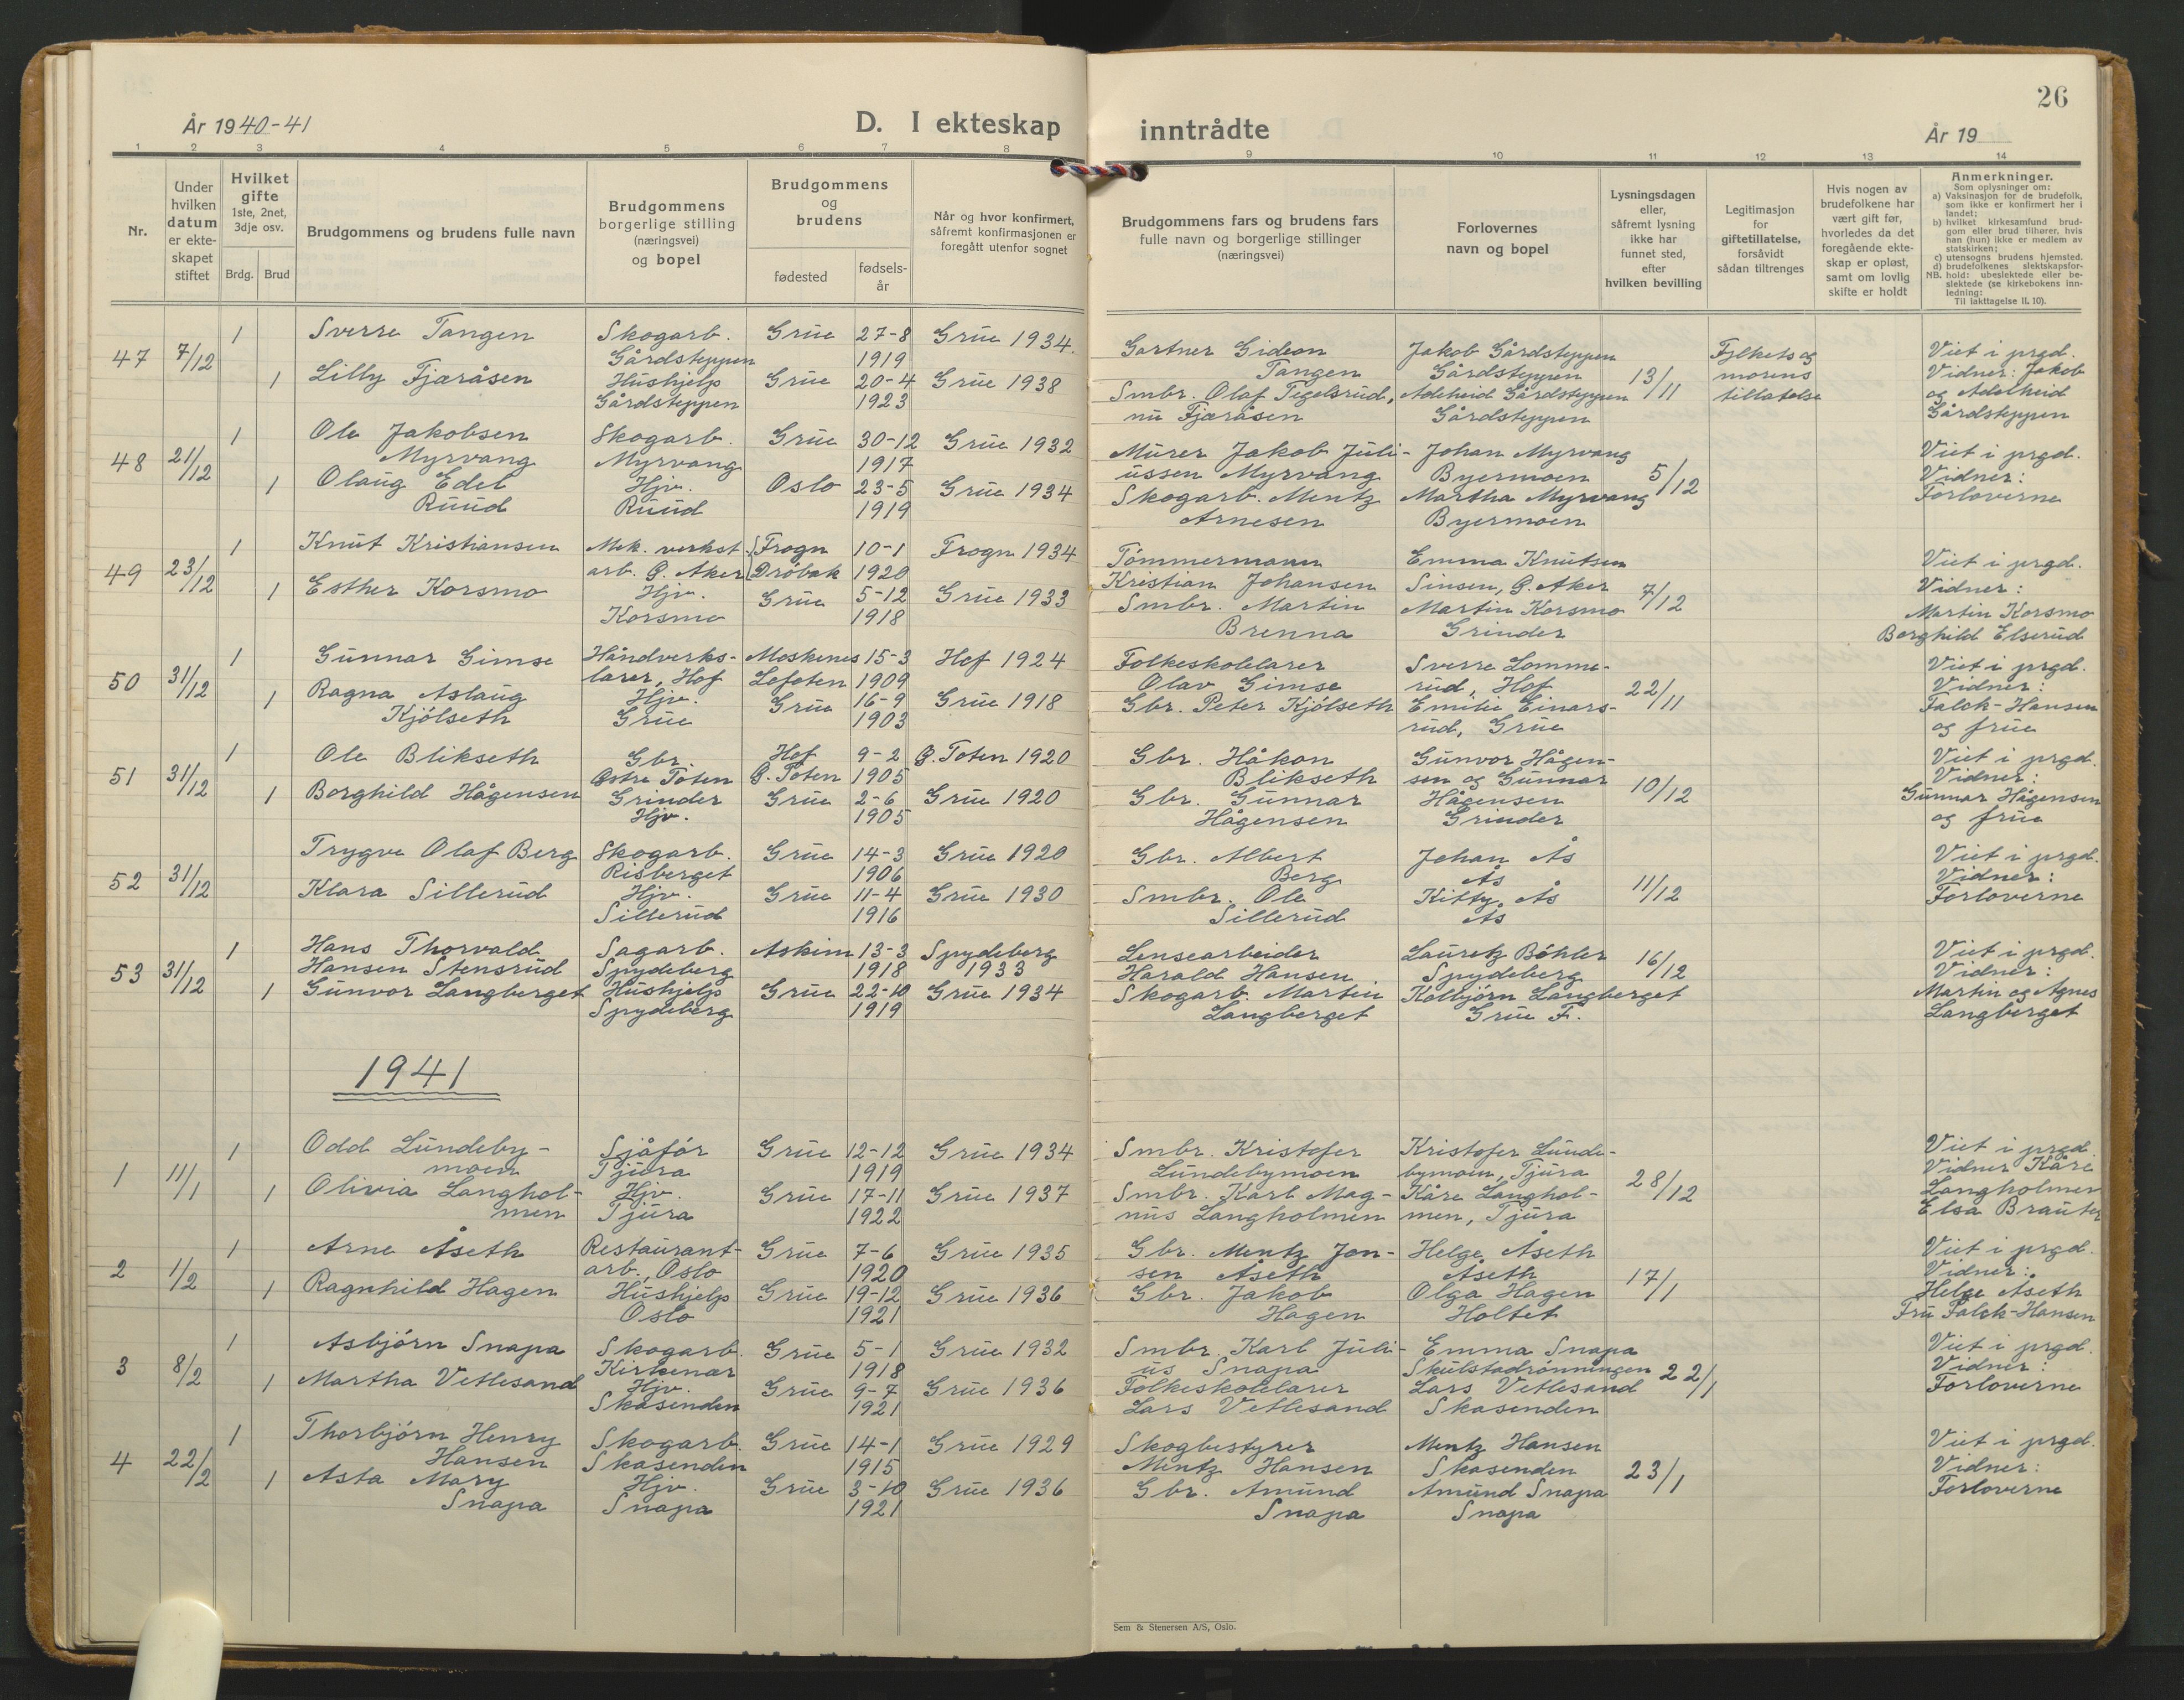 26
År 1940-41
D. I ekteskap inntrådte
År 19
1 2 3 4 5 6 7 8 9 10 11 12 13 14
Nr.
Under hvilken datum er ekteskapet stiftet
Hvilket gifte
1ste, 2net, 3dje osv.
Brdg. Brud
Brudgommens og brudens fulle navn
Brudgommens borgerlige stilling (næringsvei) og bopel
Brudgommens og brudens
fødested
fødselsår
Når og hvor konfirmert, såfremt konfirmasjonen er foregått utenfor sognet
Brudgommens fars og brudens fars fulle navn og borgerlige stillinger (næringsvei)
Forlovernes navn og bopel
Lysningsdagen eller, såfremt lysning ikke har funnet sted, efter hvilken bevilling
Legitimasjon for giftetillatelse, forsåvidt sådan tiltrenges
Hvis nogen av brudefolkene har vært gift før, hvorledes da det foregående ekteskap er opløst, samt om lovlig skifte er holdt
Anmerkninger.
Som oplysninger om:
a) Vaksinasjon for de brudefolk, som ikke er konfirmert her i landet;
b) hvilket kirkesamfund brudgom eller brud tilhører, hvis han (hun) ikke er medlem av statskirken;
c) utensogns brudens hjemsted.
d) brudefolkenes slektskapsforhold: ubeslektede eller beslektede (se kirkebokens innledning:
NB. Til iakttagelse II. 10).
47 7/12 1 Sverre Tangen Skogarb. Gårdsteppen Grue 27-8 1919 Grue 1934.
1 Lilly Fjæråsen Hushjelp Gårdsteppen Grue 20-4 1923 Grue 1938
Gartner Gideon Tangen
Smbr. Olaf Tegelsrud, nu Fjæråsen
Jakob Gårdsteppen Gårdsteppen
Adeheid Gårdsteppen Gårdsteppen
13/11
Fylkets og morens tillatelse
Viet i prgd. Vidner: Jakob og Adelheid Gårdsteppen
48 21/12 1 Ole Jakobsen Myrvang Skogarb. Myrvang Grue 30-12 1917 Grue 1932
1 Olaug Edel Ruud Hjv. Ruud Oslo 23-5 1919 Grue 1934
Murer Jakob Juliussen Myrvang
Skogarb. Mentz Arnesen
Johan Myrvang Byermoen
Martha Myrvang Byermoen
5/12
Viet i prgd. Vidner: Forloverne
49 23/12 1 Knut Kristiansen Mek. verkst. arb. Ø. Aker Frogn Drøbak 10-1 1920 Frogn 1934
1 Esther Korsmo Hjv. Korsmo Grue 5-12 1918 Grue 1933
Tømmermann Kristian Johansen
Smbr. Martin Brenna
Emma Knutsen Sinsen, Ø. Aker
Martin Korsmo Grinder
7/12
Viet i prgd. Vidner: Martin Korsmo Borghild Elserud
50 31/12 1 Gunnar Gimse Håndverkslærer, Hof Moskenes Lofoten 15-3 1909 Hof 1924
1 Ragna Aslaug Kjølseth Hjv. Grue Grue 16-9 1903 Grue 1918
Folkeskolelærer Olav Gimse
Gbr. Peter Kjølseth
Sverre Lommerud, Hof
Emilie Einarsrud, Grue
22/11
Viet i prgd. Vidner: Falck-Hansen og frue
51 31/12 1 Ole Blikseth Gbr. Østre Toten Hof Ø. Toten 9-2 1905 Ø. Toten 1920
1 Borghild Hågensen Grinder Hjv. Grue 2-6 1905 Grue 1920
Gbr. Håkon Blikseth
Gbr. Gunnar Hågensen
Gunvor Hågensen og Gunnar Hågensen Grinder
10/12
Viet i prgd. Vidner: Gunnar Hågensen og frue
52 31/12 Trygve Olaf Berg Skogarb. Risberget Grue 14-3 1906 Grue 1920
Klara Sillerud Hjv. Sillerud Grue 11-4 1916 Grue 1930
Gbr. Albert Berg
Smbr. Ole Sillerud
Johan Ås Ås
Kitty Ås Ås
11/12
Viet i prgd. Vidner: Forloverne
53 31/12 1 Hans Thorvald Hansen Stensrud Sagarb. Spydeberg Askim 13-3 1918 Spydeberg 1933
1 Gunvor Langberget Hushjelp Spydeberg Grue 22-10 1919 Grue 1934
Lensearbeider Harald Hansen
Skogarb. Martin Langberget
Lauretz Bøhler Spydeberg
Kolbjørn Langberget Grue F.
16/12
Viet i prgd. Vidner: Martin og Agnes Langberget
1941
1 11/1 1 Odd Lundebymoen Sjåfør Tjura Grue 12-12 1919 Grue 1934
1 Olivia Langholmen Hjv. Tjura Grue 17-11 1922 Grue 1937
Smbr. Kristofer Lundebymoen
Smbr. Karl Magnus Langholmen
Kristofer Lundebymoen, Tjura
Kåre Langholmen, Tjura
28/12
Viet i prgd. Vidner Kåre Langholmen Elsa Brauter
2 1/2 1 Arne Åseth Restaurantarb., Oslo Grue 7-6 1920 Grue 1935
1 Ragnhild Hagen Hushjelp Oslo Grue 19-12 1921 Grue 1936
Gbr. Mentz Jonsen Åseth
Gbr. Jakob Hagen
Helge Åseth Åseth
Olga Hagen Holtet
17/1
Viet i prgd. Vidner: Helge Åseth Fru Falck-Hansen
3 8/2 1 Asbjørn Snapa Skogarb. Kirkenær Grue 5-1 1918 Grue 1932
1 Martha Vetlesand Hjv. Skasenden Grue 9-7 1921 Grue 1936
Smbr. Karl Julius Snapa
Folkeskolelærer Lars Vetlesand
Emma Snapa Skulstadrønningen
Lars Vetlesand Skasenden
22/1
Viet i prgd. Vidner: Forloverne
4 22/2 1 Thorbjørn Henry Hansen Skogarb. Skasenden Grue 14-1 1915 Grue 1929
1 Asta Mary Snapa Hjv. Snapa Grue 3-10 1921 Grue 1936
Skogbestyrer Mentz Hansen
Gbr. Amund Snapa
Mentz Hansen Skasenden
Amund Snapa Snapa
23/1
Viet i prgd. Vidner: Forloverne
Sem & Stenersen A/S, Oslo.